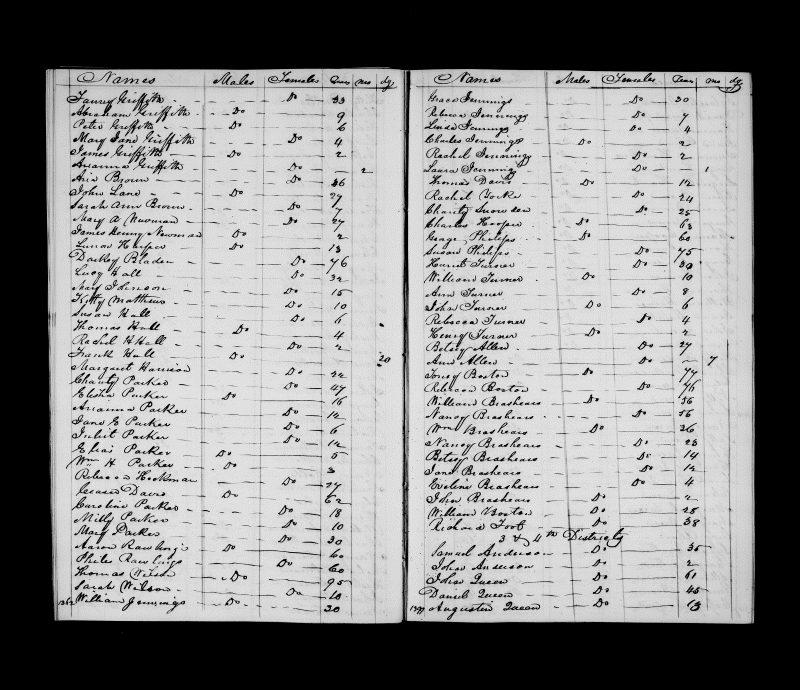 Names Males Females Years mo dy
Fanny Griffith - Do 33
Abraham Griffith - Do 9
Peter Griffith - Do 6
Mary Jane Griffith Do 4
James Griffith - Do 2
Arianna Griffith Do 2
Aria Brown - Do 36
John Lane - Do 27
Sarah Ann Brown - Do 7
Mary A Newman - Do 27
James Henry Newman Do 2
Harper Do 13
Darkey Bladen Do 76
Lucy Hall Do 32
Mary Johnson Do 15
Kitty Matthews Do 10
Susan Hall Do 6
Thomas Hall - Do 4
Rachel H Hall - Do 2
Frank Hall Do 20
Margaret Harrison Do 22
Charity Parker - Do 47
Elisha Parker Do 16
Arianna Parker Do 12
Jane E Parker Do 6
Juliet Parker Do 12
Elias Parker Do 5
Wm H Parker - Do 3
Rebecca Hockman Do 27
Davis Do 62
Caroline Parker - Do 18
Milly Parker Do 10
Mary Parker Do 30
Aaron Rawlings Do 60
Rawlings Do 60
Thomas Wilson Do 95
Sarah Wilson - Do 10
William Jennings Do 30
Names Males Females Years mo dy
Grace Jennings - Do 30
Rebecca Jennings Do 7
Linda Jennings Do 4
Charles Jennings Do 2
Rachel Jennings Do 2
Laura Jennings Do 1
Thomas Davis Do 12
Rachel Yorke Do 24
Charity Snowden Do 25
Charles Hooper Do 63
George Philips Do 60
Susan Philips Do 75
Harriet Turner Do 30
William Turner Do 10
Ann Turner Do 8
John Turner Do 6
Rebecca Turner Do 4
Henry Turner Do 2
Betsey Allen Do 27
Ann Allen Do 7
Toney Boston Do 77
Rebecca Boston Do 76
William Brashears Do 36
Nancy Brashears Do 56
Wm Brashears Do 36
Nancy Brashears Do 23
Betsey Brashears Do 14
Jane Brashears Do 12
Eveline Brashears Do 4
John Brashears Do 2
William Boston Do 28
Richard Foot Do 38
3 & 4th Districts
Samuel Anderson Do 35
John Anderson - Do 2
John Queen Do 61
Daniel Queen Do 45
Augustin Queen Do 13